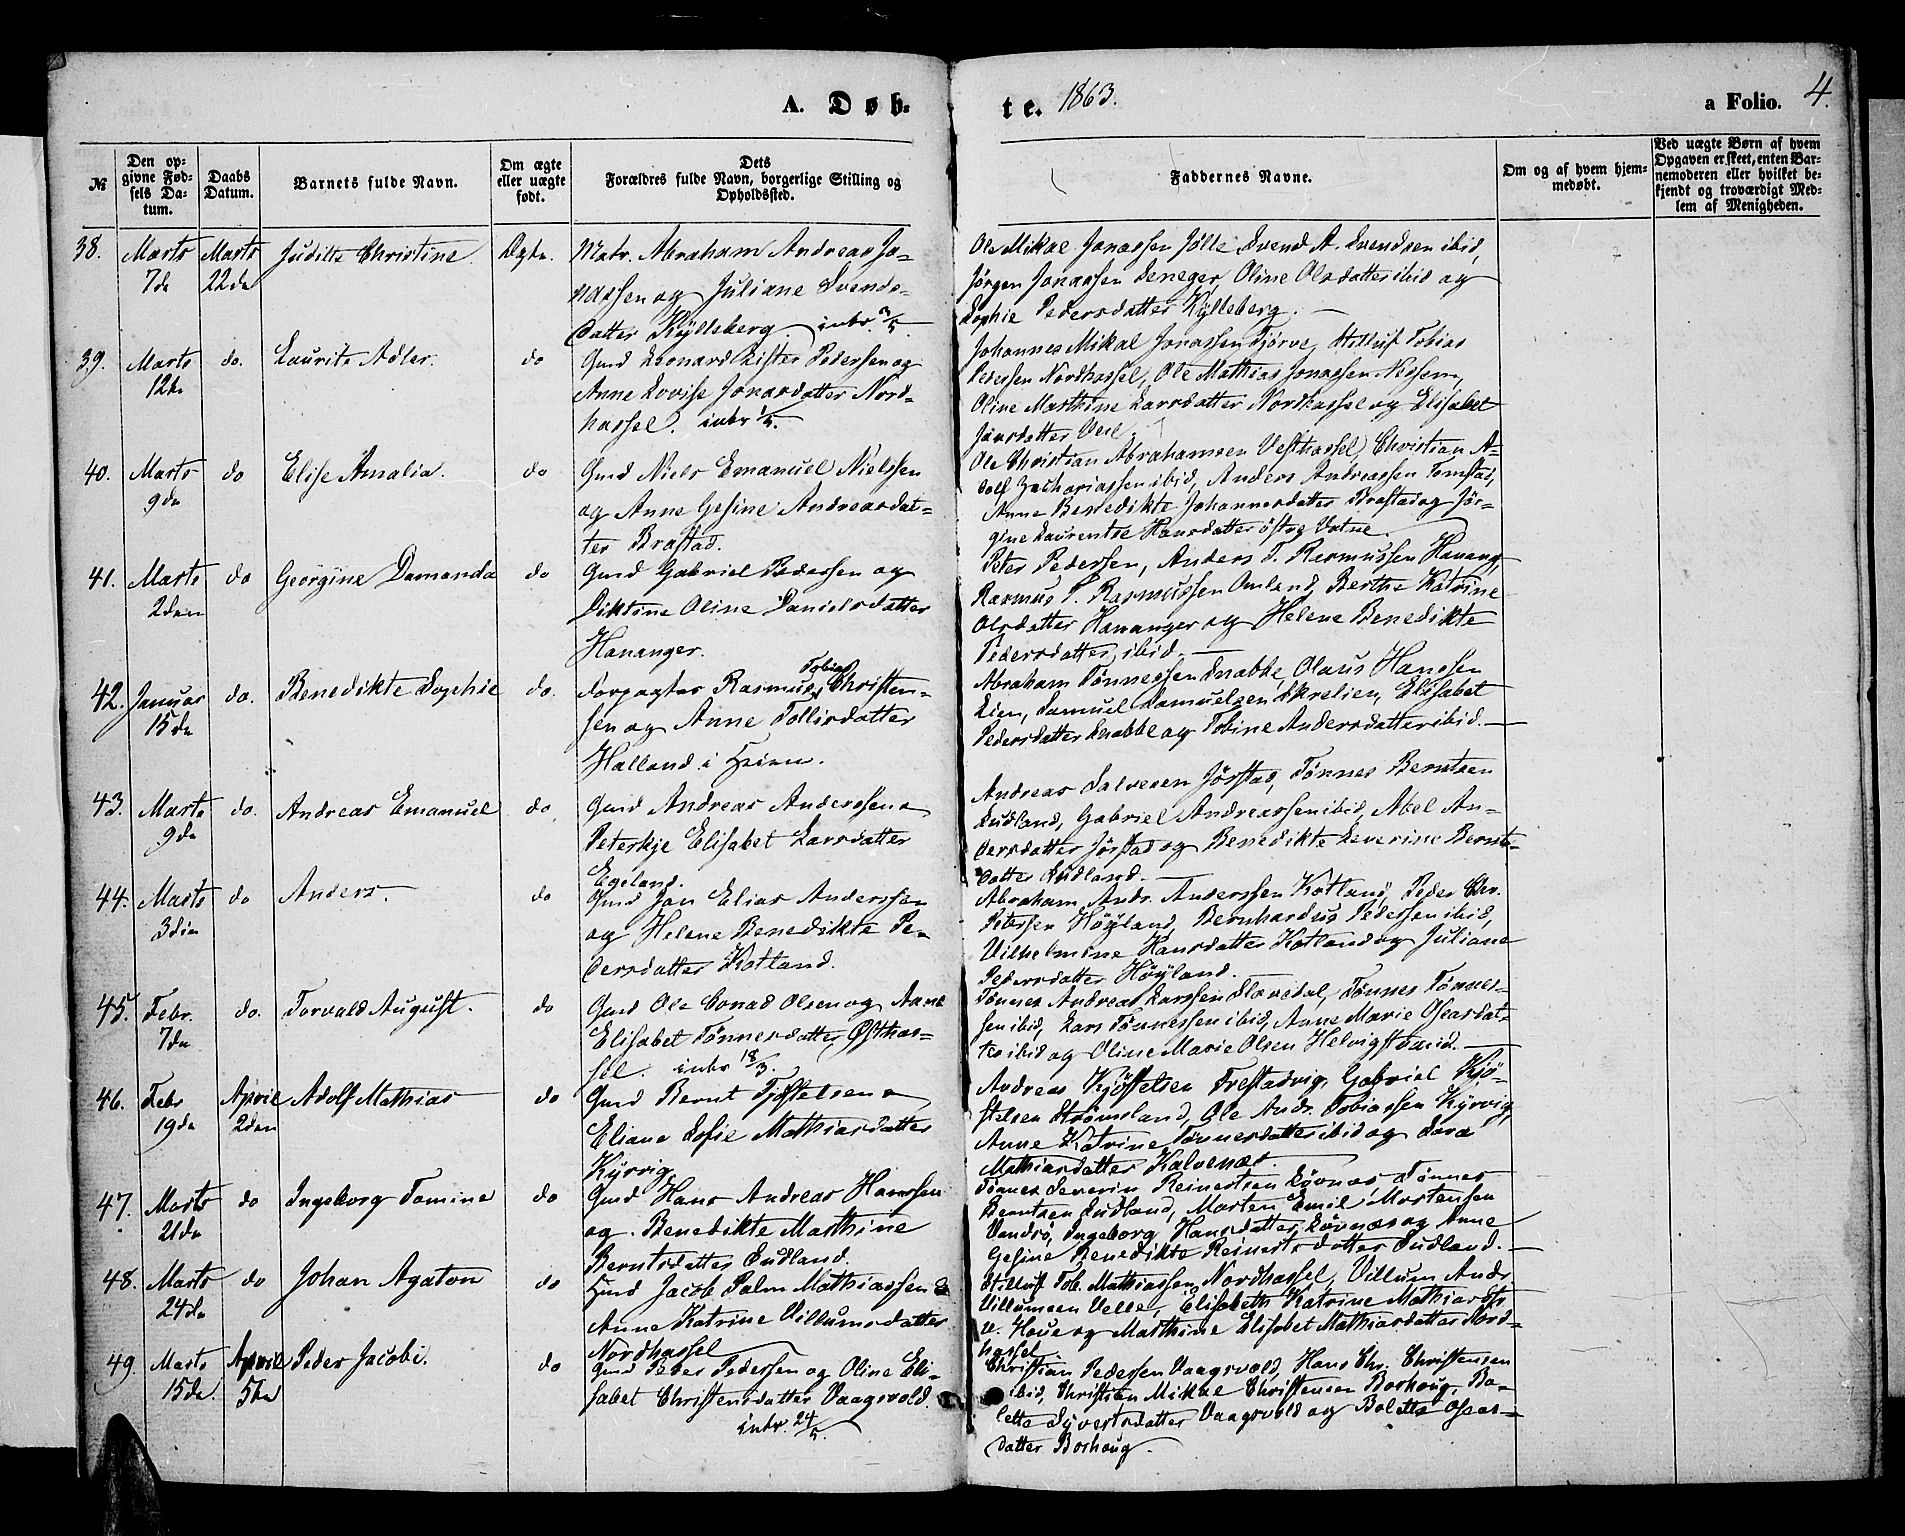 A. Døb-
te. 1863.
a Folio. 4.
№
Den op-
givne Fød-
sels Da-
tum.
Daabs
Datum.
Barnets fulde Navn.
Om ægte
eller uægte
født.
Dets
Forældres fulde Navn, borgerlige Stilling og
Opholdssted.
Faddernes Navne.
Om og af hvem hjem-
medøbt.
Ved uægte Børn af hvem
Opgaven er skeet, enten Bar-
nemoderen eller hvilket be-
kjendt og troværdigt Med-
lem af Menigheden.
38. Marts Marts Judithe Christine. Ægte. Matr. Abraham Andreas Jo-
7de 22de nassen og Juliane Svends-
datter Kyllsberg. intr. 3/5
Ole Mikal Jonassen Jølle Svend A. Svendsen ibid,
Jørgen Jonassen Seneger, Oline Olsdatter ibid og
Sophie Pedersdatter Kylleberg.
39. Marts do. Laurits Adler. do Gmd Leonard Lister Pedersen og
12te Anne Lovise Jonasdatter Nord-
hassel. intr 1/5.
Johannes Mikal Jonassen Tjørve, Tobias
Pedersen Nordhassel, Ole Mathias Jonassen
Oline Marthine Larsdatter Nordhassel og Elisabet
Jonsdatter
40. Marts do Elise Amalia. do Gmd Niels Emanuel Nielssen
9de og Anne Gesine Andreasdat-
ter Brastad.
Ole Christian Abrahamsen Vesthassel, Christian A-
dolf Zachariassen ibid, Anders Andreassen Tomstad,
Anne Benedikte Johannesdatter Brastad og Jør-
gine Laurentse Hansdatter østre Vatne.
41. Marts do Georgine Damanda do Gmd Gabriel Pedersen og
2den Diktine Oline Danielsdatter
Hananger.
Peter Pedersen, Anders T. Rasmussen Hanang,
Rasmus P. Rasmussen Omland, Berthe Katrine
Olsdatter Hananger og Helene Benedikte
Pedersdatter ibid.
42. Januar do. Benedikte Sophie do. Forpagter Rasmus Tobias Christen-
15de sen og Anne Tollisdatter
Halland i Heien.
Abraham Tønnessen Snabbe, Olaus Hanssen
Lien, Samuel Samuelsen Skrelien, Elisabet
Pedersdatter Snabbe og Tobine Andersdatter ibid.
43. Marts do. Andreas Emanuel do Gmd Andreas Anderssen
9de Peterkje Elisabet Larsdatter
Egeland.
Andreas Salvesen Jørstad, Tønnes Berntsen
Sudland, Gabriel Andreassen ibid, Abel An-
dersdatter Jørstad og Benedikte Severine Bernts-
datter Sudland.
44. Marts do Anders. do Gmd Jan Elias Anderssen
3die og Helene Benedikte Pe-
dersdatter Kotland.
Abraham Andr. Anderssen Kotland, Peder Chr.
Petersen Høyland, Bernhardus Pedersen ibid,
Vilhelmine Hansdatter Kotland og Juliane
Pedersdatter Høyland.
45. Febr. do. Torvald August. do Gmd Ole Conrad Olsen og Anne
7de Elisabet Tønnesdatter, Østhas-
sel. intr 18/3.
Tønnes Andreas Larssen Slavedal, Tønnes Tønnes-
sen ibid, Lars Tønnessen ibid, Anne Marie Osearsdat-
ter ibid og Oline Marie Olsen Helvigstrand.
46. Febr April Adolf Mathias do Gmd Bernt Tjøstelsen
19de 2den Eliane Sofie Mathiasdatter
Kyrvig
Andreas Kjøstelsen Trestadvig, Gabriel Kjø-
stelsen Strømsland, Ole Andr. Tobiassen Kyrvig,
Anne Katrine Tønnesdatter ibid og Sara
Mathiasdatter Kalvenæs.
47. Marts do Ingeborg Tomine do Gmd Hans Andreas Hanssen
21de og Benedikte Marthine
Berntsdatter Sudland.
Tønnes Severin Reinertsen Løvnæs, Tønnes
Berntsen Sudland, Morten Emil Mortensen
Vandsø, Ingeborg Hansdatter Løvnæs og Anne
Gesine Benedikte Reinertsdatter Sudland.
48. Marts do Johan Agaton do Hmd Jacob Palm Mathiassen &
24de Anne Katrine Villumsdatter
Nordhassel
Tob. Mathiassen Nordhassel, Villum Andr.
Villumsen Velle, Elisabeth Katrine Mathiasdtr
v. Haue og Marthine Elisabet Mathiasdatter Nord-
hassel.
49. Marts April Peder Jacobi. do Gmd Peder Pedersen og Oline Eli-
15de. 5te sabet Christensdatter Vaagsvold.
intr. 24/5.
Christian Pedersen Vaagsvold, Hans Chr. Christensen
ibid, Christian Mikkel Christensen Borhoug, Bo-
lette Syvertsdatter Vaagsvold og Bolette Osears-
datter Borhoug.